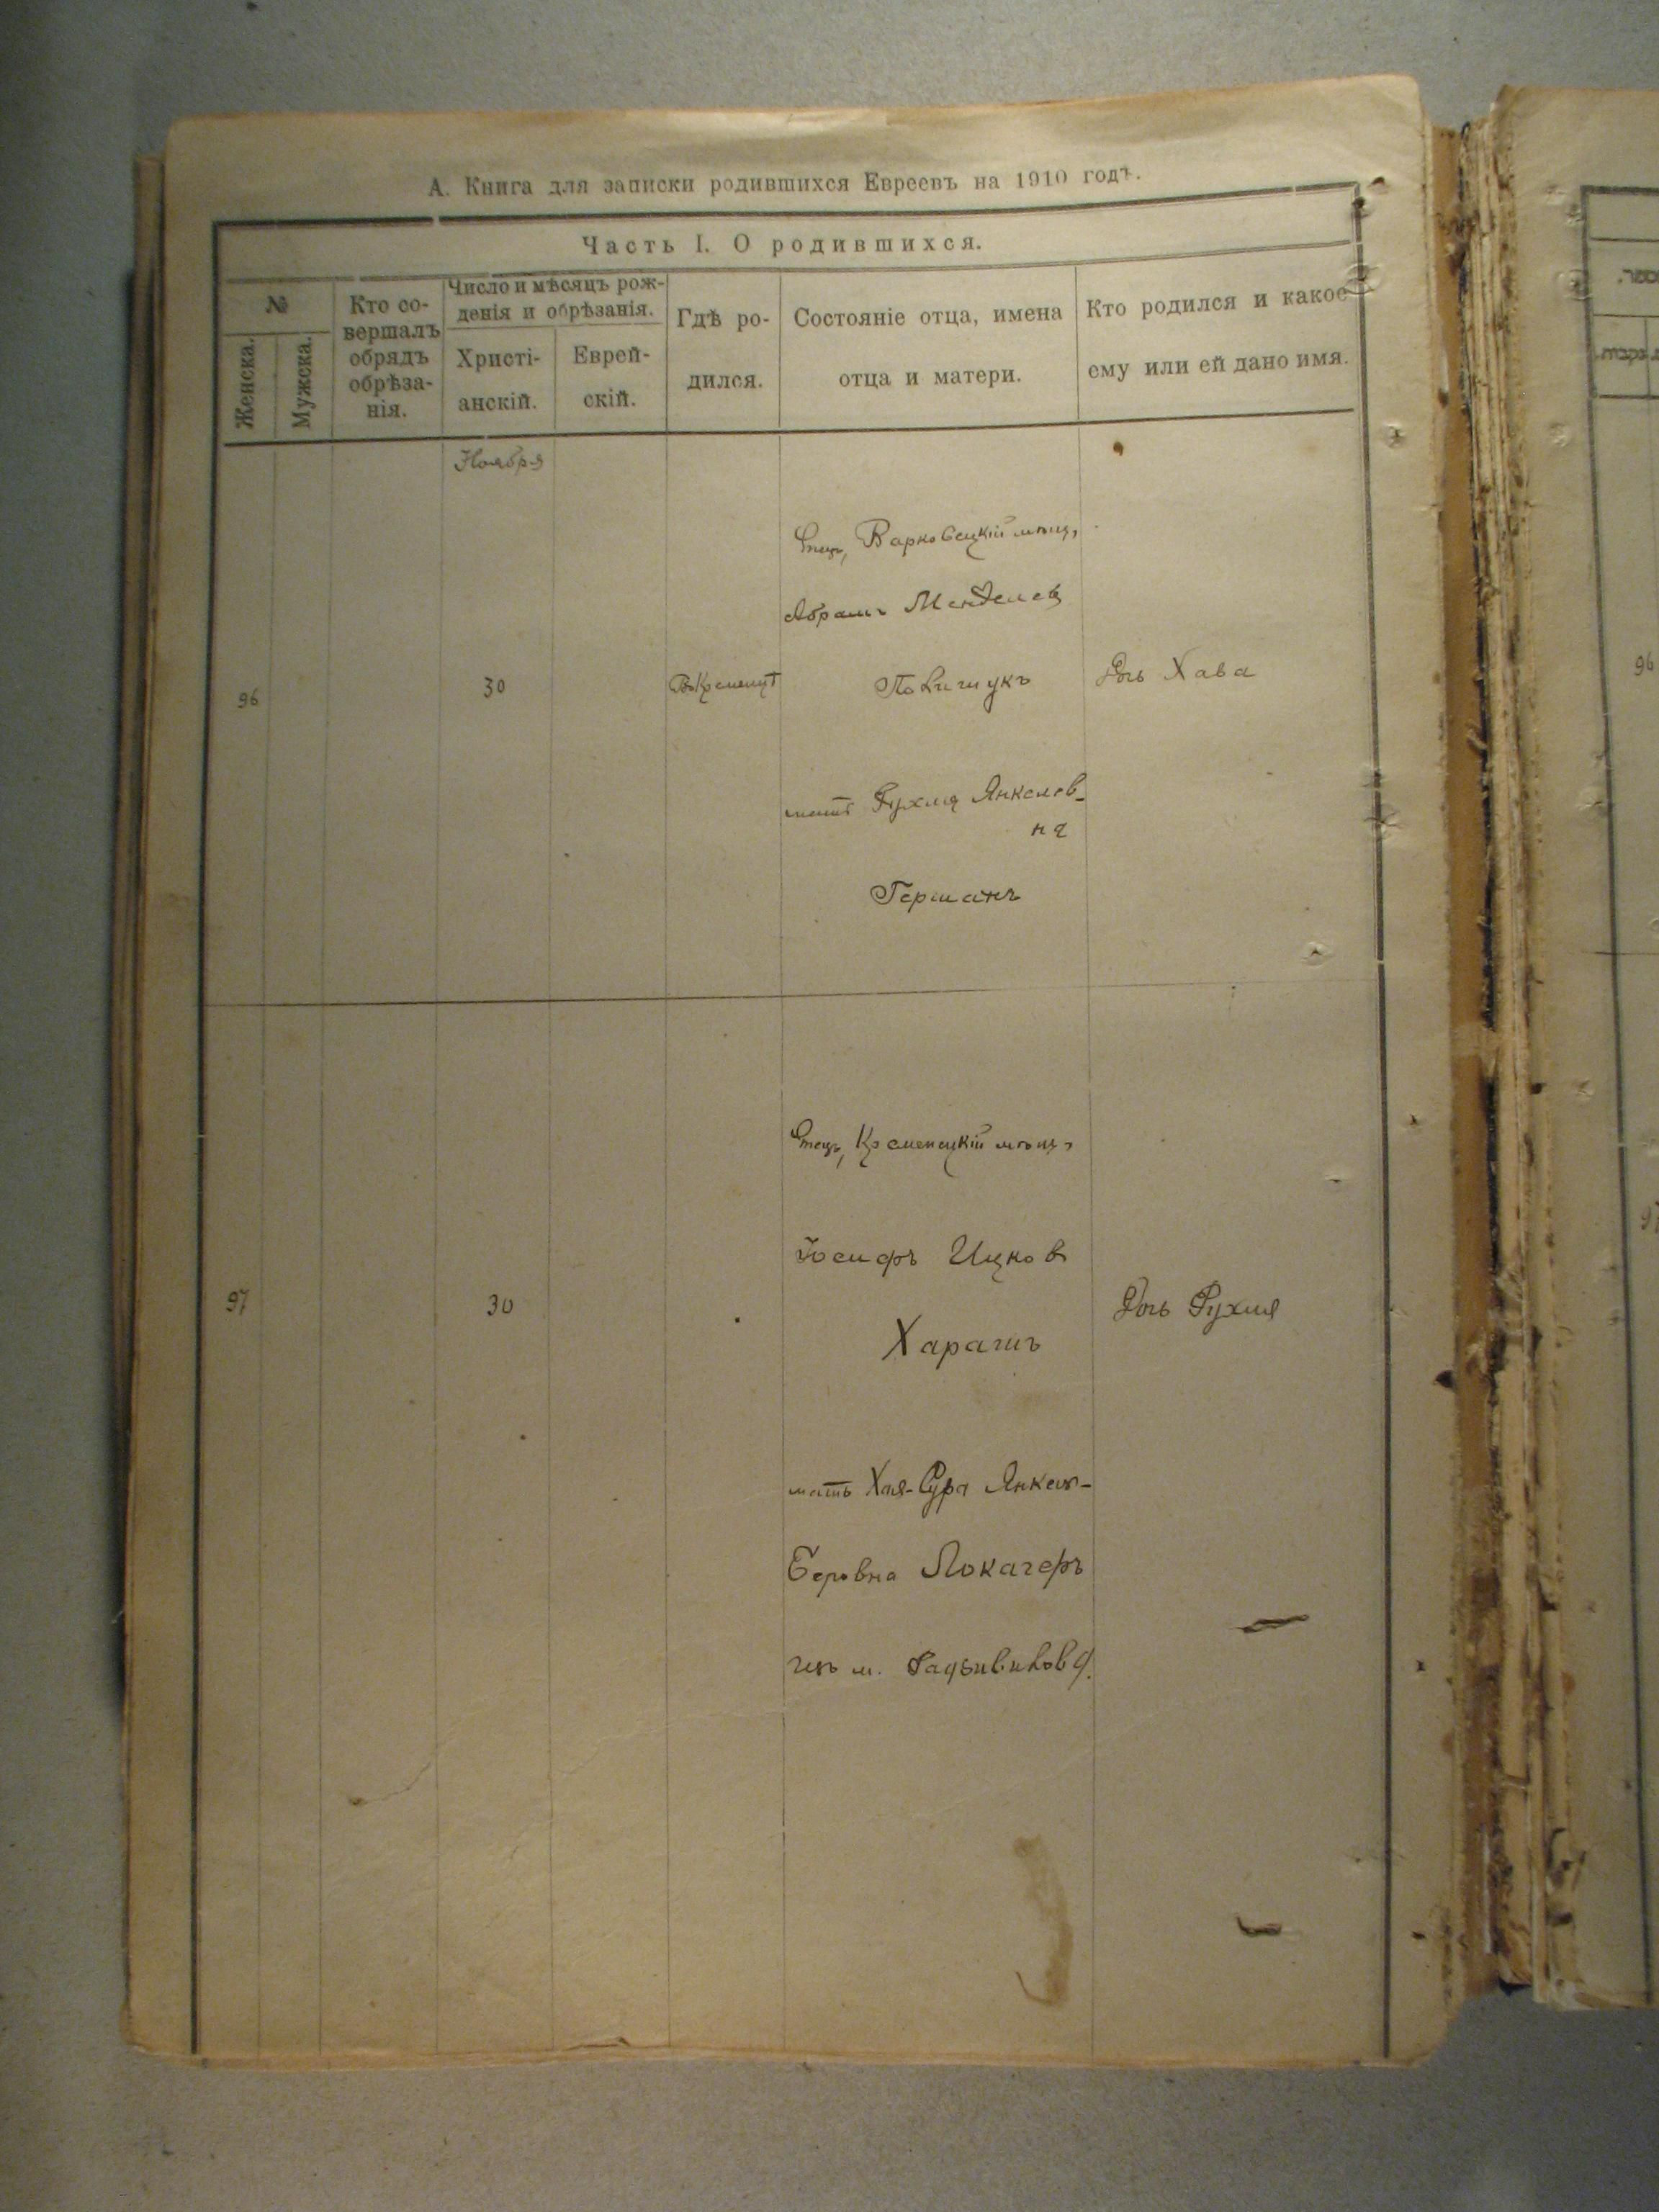 А. Книга для записки родившихся Евреевъ на 1910 годъ.
Часть I. О родившихся.
№
Женска.
Мужска.
Кто со-
вершалъ
обрядъ
обрѣза-
нія.
Число и мѣсяцъ рож-
денія и обрѣзанія.
Христі-
анскій.
Еврей-
скій.
Гдѣ ро-
дился.
Состояніе отца, имена
отца и матери.
Кто родился и какое
ему или ей дано имя.
Ноября
96
30
Отец, Варковецкій мѣщ,
Абрамъ Менделев
Полищукъ
мать Рухля Янкелев-
на
Герман
Дочь Хава
97
30
Отец, Кременецкій мѣщ,
Іосифъ Ицков
Харашъ
мать Хая-Сура Янкель-
Беровна Локачеръ
изъ м. Радзивилова.
Дочь Рухля
96